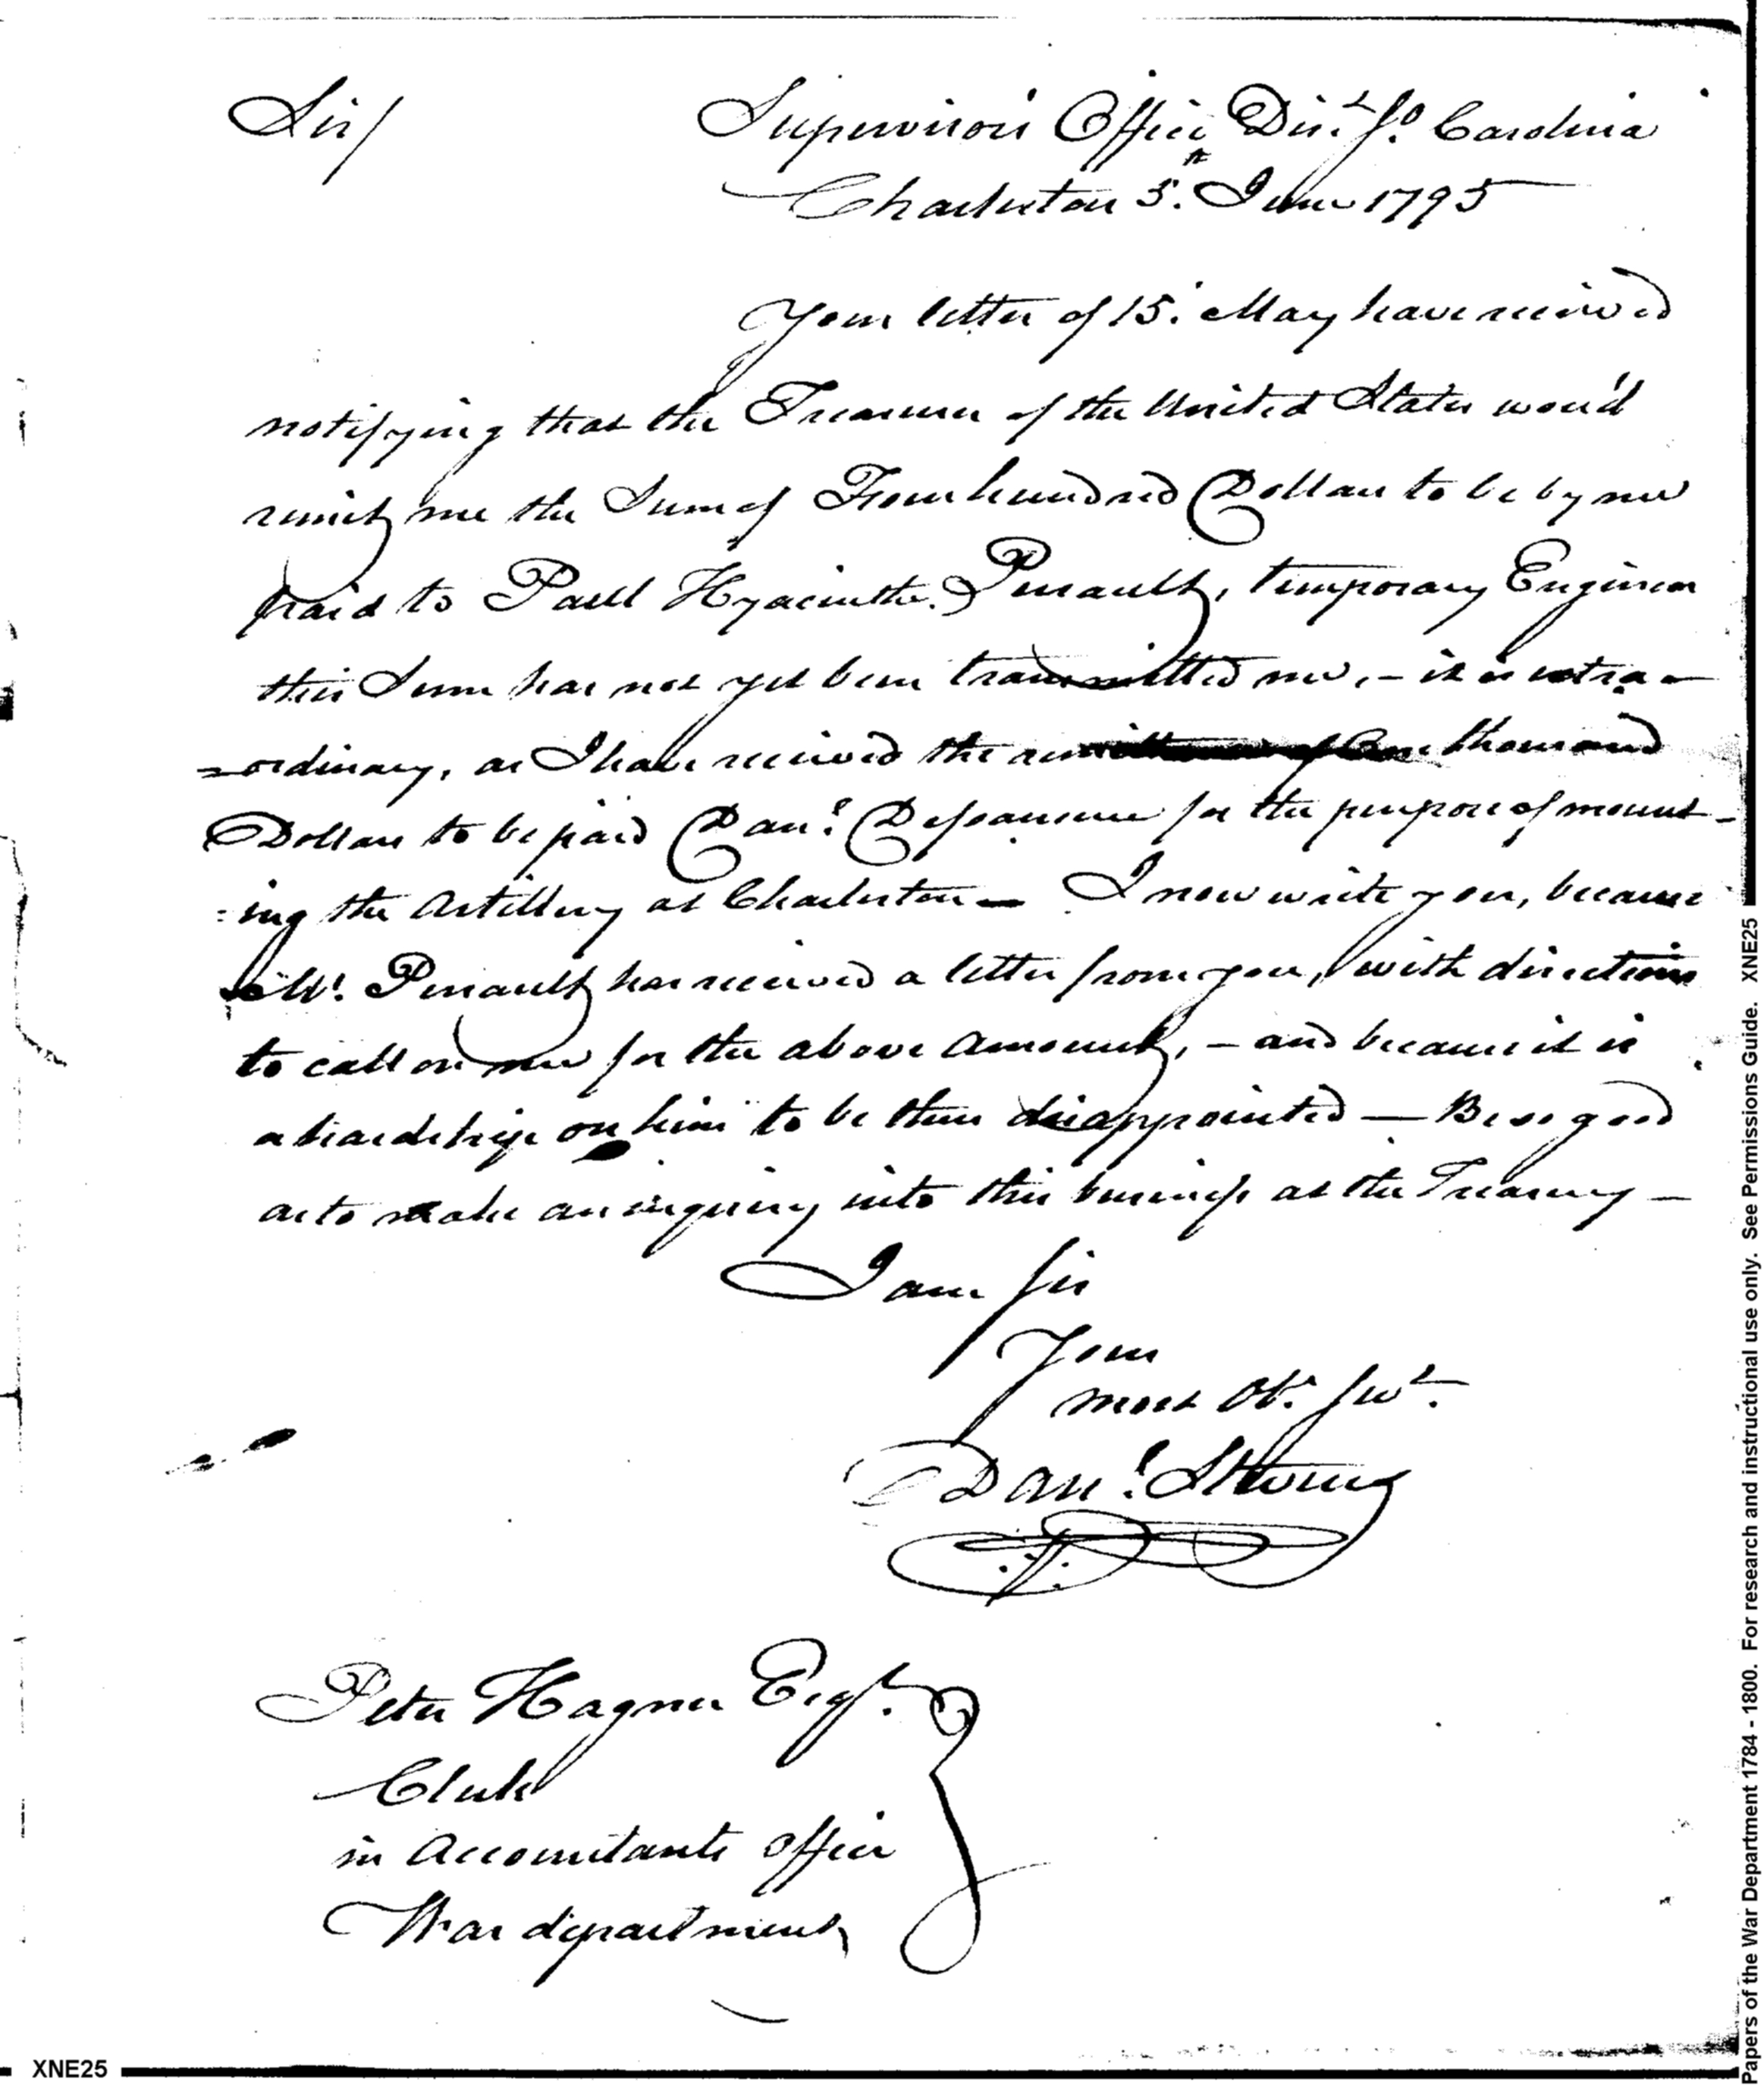 Sir/
Supervisor's Office, Dist. So. Carolina
Charleston 5th. June 1795
Your letter of 15. May have received
notifying that the Treasurer of the United States wou'd
remit me the Sum of Four hundred Dollars to be by me
paid to Paul Hyacinthe Perrault, temporary Engineer
this Sum has not yet been transmitted me, – it is extra-
=ordinary, as I have received the remittance of One thousand
Dollars to be paid Danl. Desaussure for the purpose of mount-
=ing the Artillery at Charleston — I now write you, because
Mr. Perrault has received a letter from you, with directions
to call on me for the above Amount, – and because it is
a hardship on him to be thus disappointed — Be so good
as to make an inquiry into this business at the Treasury —
I am Sir
Your
most Obt. Servt.
Danl. Stevens
Peter Hagner Esqr.
Clerk
in Accountants Office
War department
XNE25
Papers of the War Department 1784 - 1800. For research and instructional use only. See Permissions Guide. XNE25